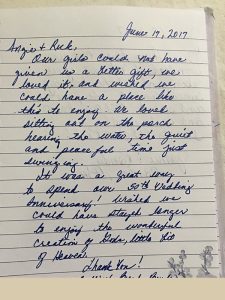 June 17, 2017
Angie & Rick,
Our girls could not have
given us a better gift, we
loved it and wished we
could have a place like
this to enjoy. We loved
sitting out on the porch
hearing the water, the quiet
and peaceful time just
swinging.
It was a great way
to spend our 50th Wedding
Anniversary! Wished we
could have stayed longer
to enjoy the wonderful
creation of God's little bit
of Heaven.
Thank You!